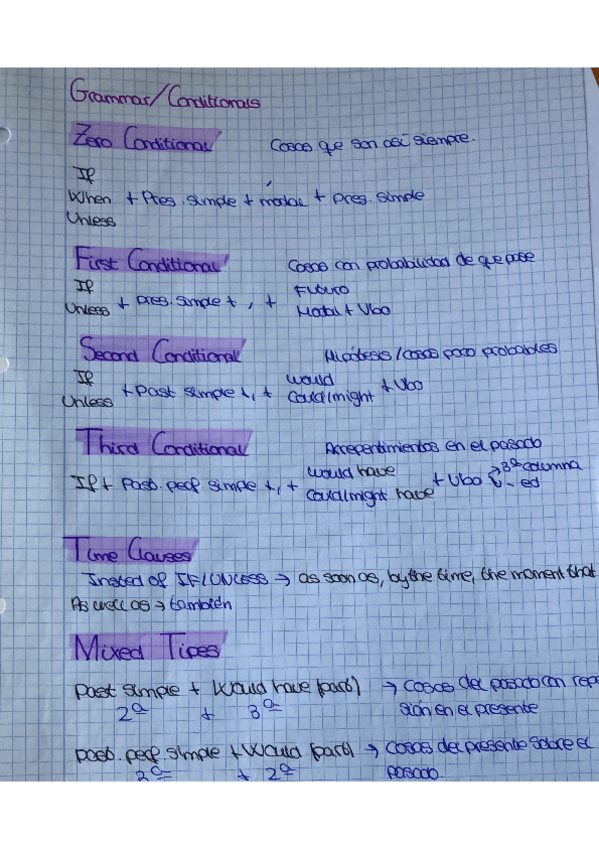 Grammar/Conditionals
Zero Conditional Cosas que son así siempre.
If
When + Pres. simple + modal + pres. simple
Unless
First Conditional Cosas con probabilidad de que pase
If Futuro
Unless + pres. simple + , +
Modal + Vbo
Second Conditional Hipótesis / cosas poco probables
If would
Unless + past simple + , + could/might + Vbo
Third Conditional Arrepentimientos en el pasado
would have → 3ª columna
If + past. perf simple + , + + Vbo
could/might have - ed
Time Clauses
Instead of IF/UNLESS → as soon as, by the time, the moment that
As well as → también
Mixed Tipes
past simple + would have (part) → cosas del pasado con reper
2ª + 3ª sión en el presente
past. perf. simple + would (part) → cosas del presente sobre el
3ª + 2ª pasado.